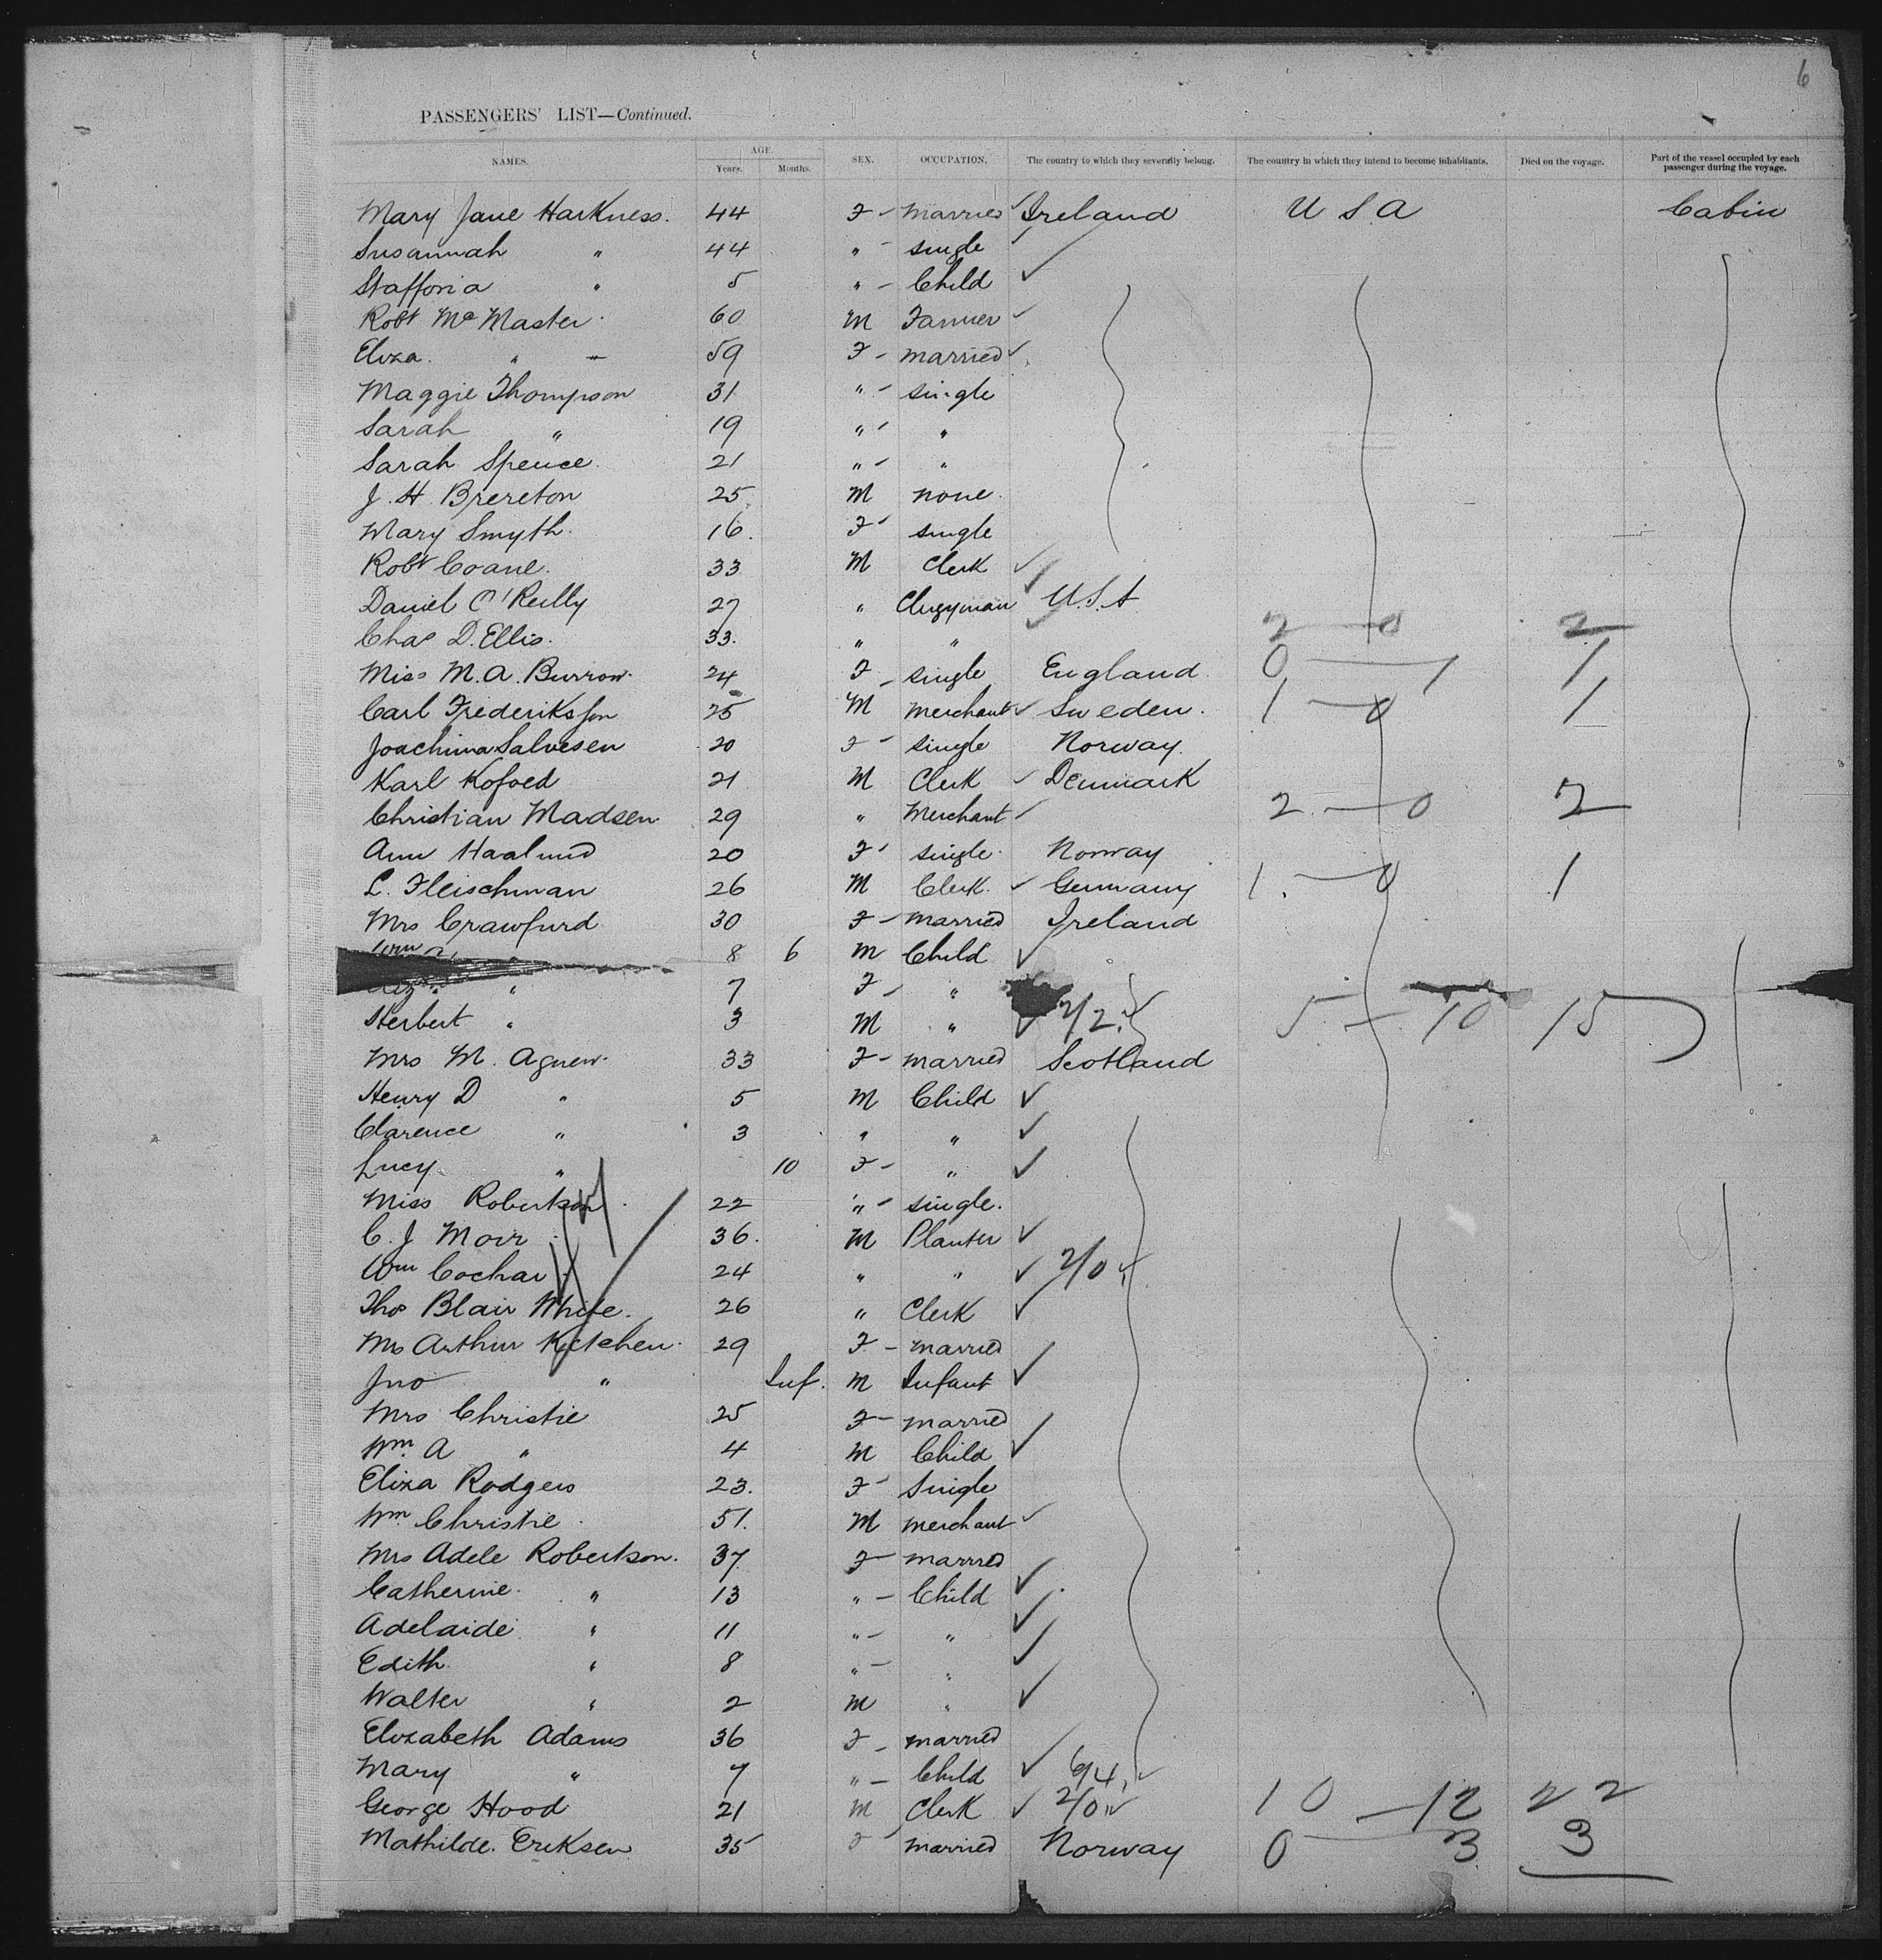 6
PASSENGERS' LIST—Continued.
NAMES. AGE. Years. Months. SEX. OCCUPATION. The country to which they severally belong. The country in which they intend to become inhabitants. Died on the voyage. Part of the vessel occupied by each passenger during the voyage.
Mary Jane Harkness. 44 F - married Ireland U S A Cabin
Susannah " 44 " - single
Stafforia " 5 " - Child
Robt McMaster 60 M Farmer
Eliza " 59 F - married
Maggie Thompson 31 " - single
Sarah " 19 " - "
Sarah Spence 21 " - "
J. H. Brereton 25 M none
Mary Smyth 16. F - single
Robt Coane. 33 M Clerk
Daniel O'Reilly 27 " Clergyman U.S.A
Chas D. Ellis. 33. " " 2 — 0 2
Miss M. A. Burrow. 24 F - single England 0 — 1 1
Carl Frederiksson 25 M Merchant Sweden. 1 — 0 1
Joachima Salvesen 20 F - single Norway.
Karl Kofoed 21 M Clerk Denmark
Christian Madsen 29 " Merchant 2 — 0 2
Ann Haalund 20 F - single. Norway
L. Fleischman 26 M Clerk. Germany 1. — 0 1
Mrs Crawfurd 30 F - married Ireland
Wm 8 6 M Child
" 7 F - "
Herbert " 3 M " 2/2 5 — 10 15
Mrs M. Agnew. 33 F - married Scotland
Henry D " 5 M Child
Clarence " 3 " "
Lucy " 10 F - "
Miss Robertson 22 " - single.
C. J Moir 36. M Planter
Wm Cochar 24 " " 2/0
Thos Blair White. 26 " Clerk
Mrs Arthur Kitchen 29 F - married
Jno " Inf. M Infant
Mrs Christie 25 F - married
Wm A " 4 M Child
Eliza Rodgers 23. F - Single
Wm Christie 51. M merchant
Mrs Adele Robertson. 37 F - married
Catherine " 13 " - Child
Adelaide " 11 " - "
Edith " 8 " - "
Walter " 2 M "
Elizabeth Adams 36 F - married
Mary " 7 " - Child 6/4
George Hood 21 M Clerk 2/0 10 — 12 22
Mathilde. Eriksen 35 F - married Norway 0 — 3 3